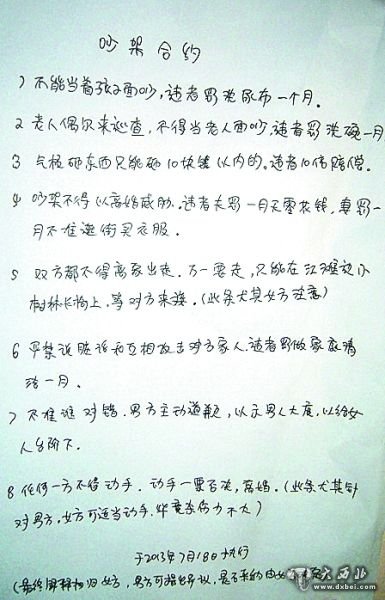 吵架合约
1 不能当着孩子面吵,违者罚洗尿布一个月.
2 老人偶尔来巡查,不得当老人面吵,违者罚洗碗一月
3 气极砸东西只能砸10块钱以内的.违者10倍赔偿.
4 吵架不得以离婚威胁.违者夫罚一月无零花钱,妻罚一
月不准逛街买衣服.
5 双方都不得离家出走.万一要走,只能在江堤边小
树林长椅上,等对方来接.(此条尤其女方注意)
6 严禁说脏话和互相攻击对方家人.违者罚做家庭清
洁一月.
7 不准谁对错.男方主动道歉,以示男人大度,以给女
人台阶下.
8 任何一方不得动手.动手一票否决,离婚.(此条尤其针
对男方,女方可适当动手.毕竟杀伤力不大)
于2013年7月18日执行
(最终解释权归女方,男方可提出异议,是否采纳由女
大西北
www.dxbei.com